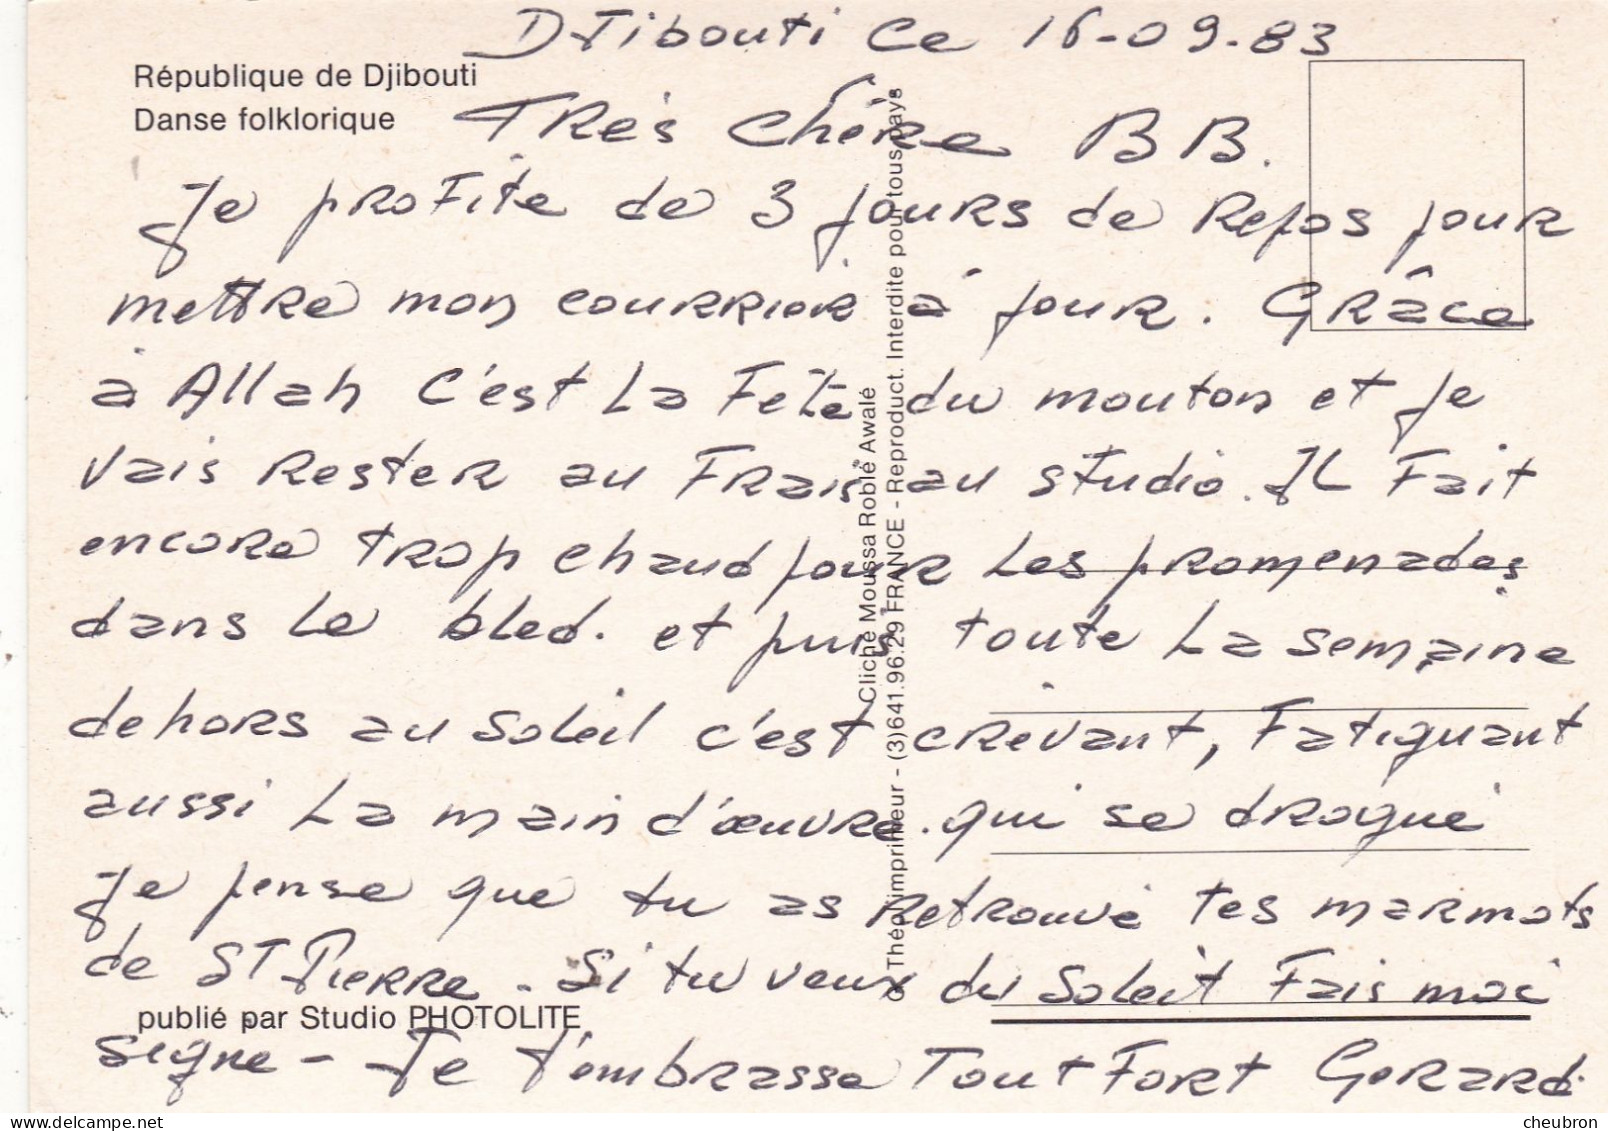 Djibouti Ce 16-09-83
République de Djibouti
Danse folklorique
Très Chère BB.
Je profite de 3 jours de Repos pour
mettre mon courrier à jour. Grâce
à Allah c'est La Fête du mouton et je
vais Rester au Frais au studio. IL Fait
encore trop chaud pour Les promenades
dans Le bled. et puis toute La semaine
dehors au soleil c'est crevant, Fatiguant
aussi La main d'œuvre. qui se drogue
Je pense que tu as Retrouvé tes marmots
de ST Pierre. Si tu veux du Soleil Fais moi
signe - Je t'embrasse Tout Fort Gérard.
publié par Studio PHOTOLITE
Cliché Moussa Roblé Awalé
Théojac imprimeur - (3)641.96.29 FRANCE - Reproduct. Interdite pour tous pays
cheubron